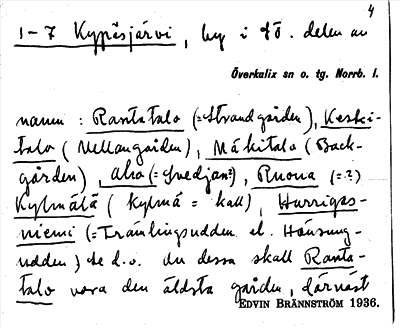 4
1-7 Kypäsjärvi, by i sö. delen av
Överkalix sn o. tg. Norrb. l.
namn: Rantatalo (=Strandgården), Keski-
talo (Mellangården), Mäkitalo (Back-
gården), Aho (=Svedjan?), Ruona (=?)
Kylmälä (kylmä = kall), Harrigas-
niemi (=Tranlingsudden el. Hansung-
udden) se d.o. Av dessa skall Ranta-
talo vara den äldsta gården, därnäst
EDVIN BRÄNNSTRÖM 1936.